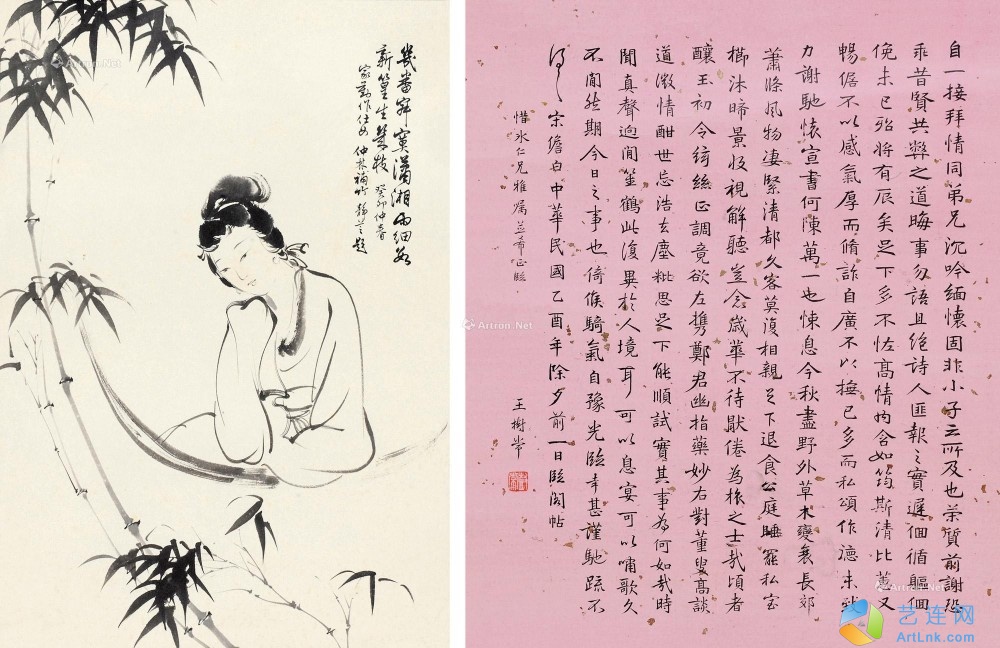 幾番寂寞瀟湘雨細數
新篁生幾枝 癸卯仲春
家勤作仕女 仲林補竹 題
自一接拜情同弟兄沉吟緬懷固非小子之所及也荣質前謝恐
乖昔賢共弊之道晦事勿語且絕詩人匪報之實遲徊循軀徊
俛未已貽將有辰矣足下多不恡高情內含如筠斯清比蕙又
暢倨不以感氣厚而脩詐自廣不以撫已多而私頌作德未
力謝馳懷宣書何陳萬一也悚息今秋盡野外草木變衰長郊
蕭條風物淒緊清都久客莫復相親足下退食公庭睡罷私室
櫛沐晞景收視解聽豈念歲華不待猒倦為旅之士哉頃者
釀玉初令綺絲正調竟欲左携鄭君幽指藥妙右對董叟高談
道澂情酣世忘浩去塵粃思足下能順試實其事為何如哉時
聞真聲迥聞笙鶴此復異於人境耳可以息宴可以嘯歌久
不間然期今日之事也倚候騎氣自豫光臨幸甚謹馳疏不
宋儋白中華民國乙酉年除夕前一日臨閣帖
惜冰仁兄雅嘱並希正臨
王樹常
Artron.Net
艺连网
ArtLnk.com